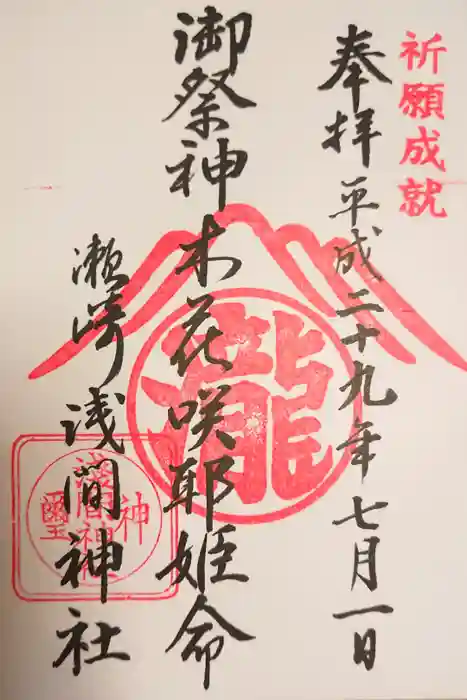 祈願成就
奉拝 平成二十九年七月一日
御祭神 木花咲耶姫命
瀬崎浅間神社
瀧